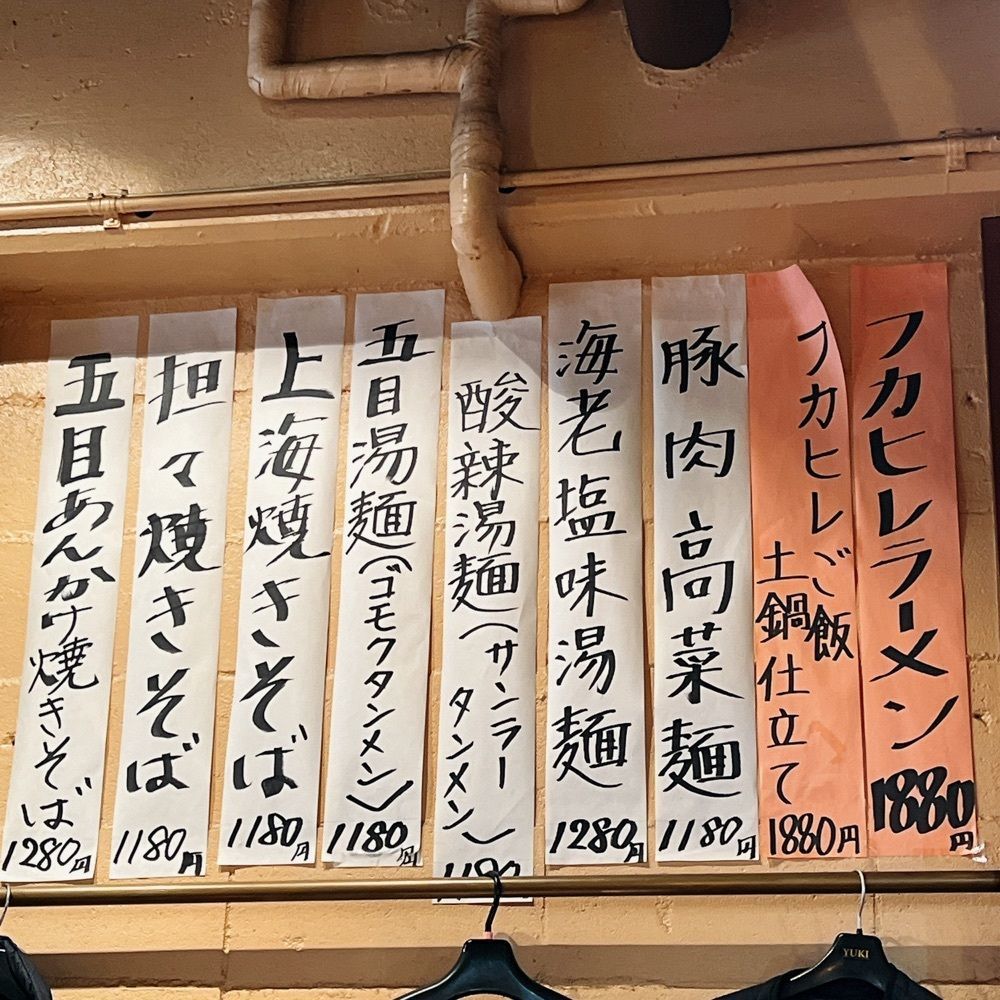 フカヒレラーメン
1880円
フカヒレご飯
土鍋仕立て
1880円
豚肉高菜麺
1180円
海老塩味湯麺
1280円
酸辣湯麺(サンラー
タンメン)
五目湯麺(ゴモクタンメン)
1180円
上海焼きそば
1180円
担々焼きそば
1180円
五目あんかけ焼きそば
1280円
YUKI